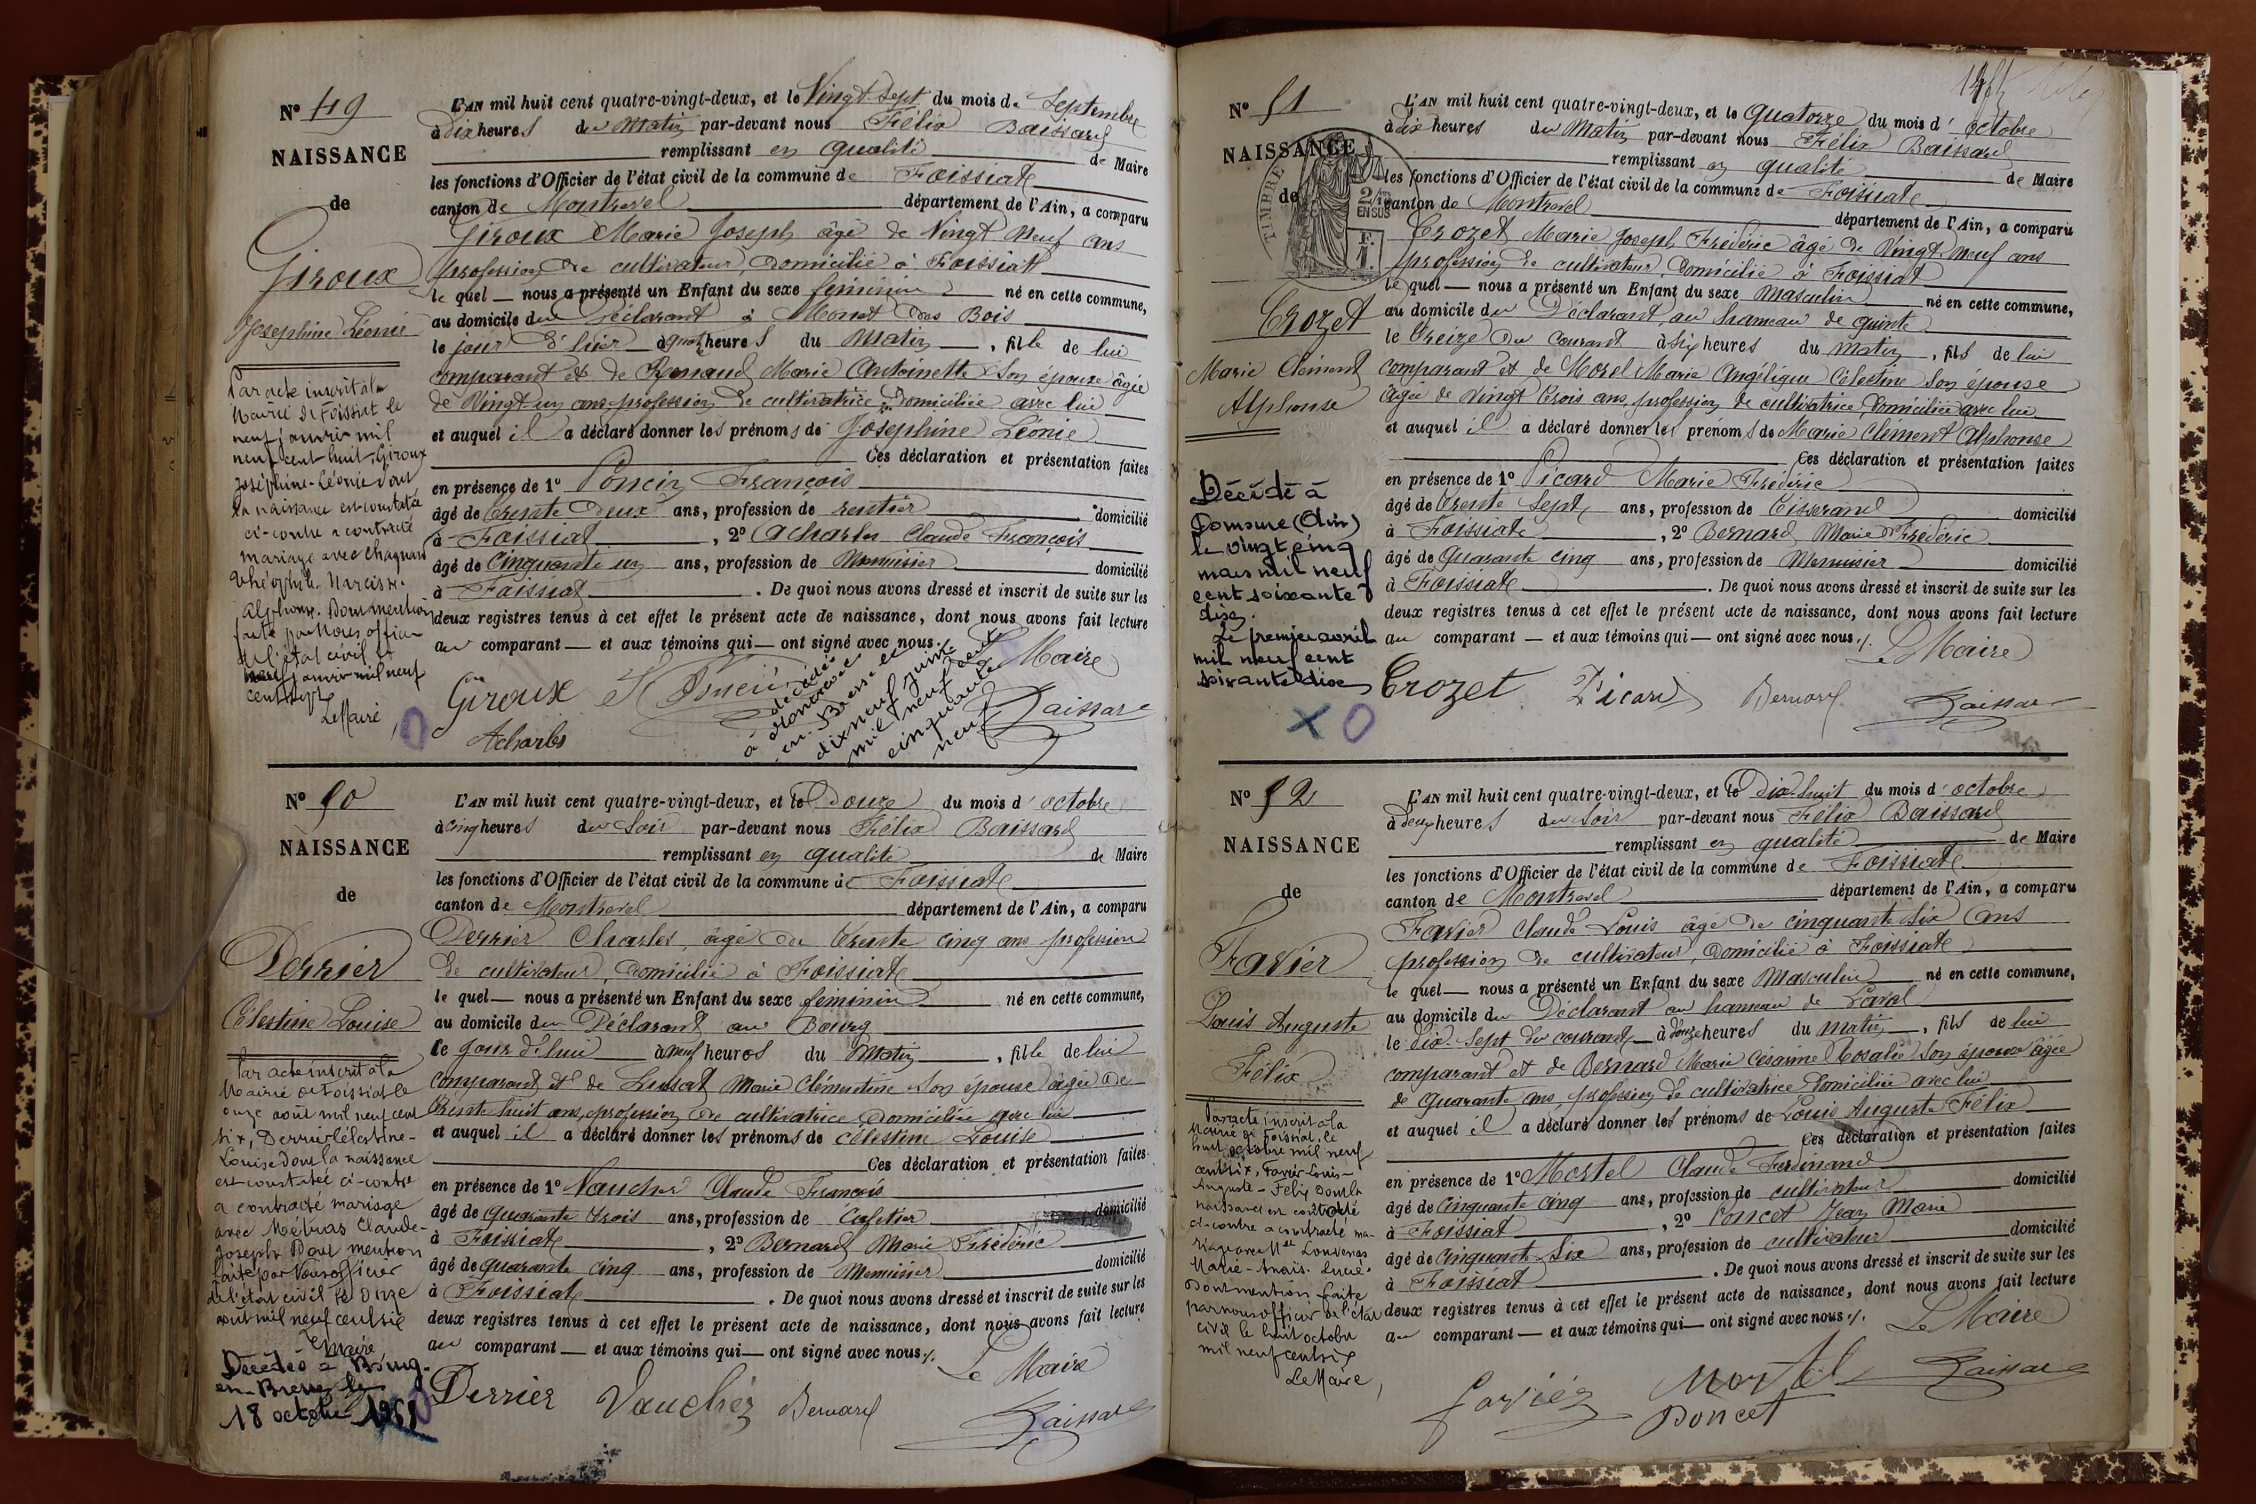 N° 49
NAISSANCE
de
Giroux
Josephine Léonie
Par acte inscrit à la
Mairie de Foissiat le
neuf janvier mil
neuf cent huit, Giroux
Joséphine-Léonie dont
la naissance est constatée
ci-contre a contracté
mariage avec Chagnard
Théophile Narcisse
Alphonse. Dont mention
faite par Nous officier
de l'état civil le
neuf janvier mil neuf
cent
Le Maire
L'AN mil huit cent quatre-vingt-deux, et le Vingt Sept du mois de Septembre
à dix heures du Matin par-devant nous Félix Baissard
remplissant en qualité de Maire
les fonctions d'Officier de l'état civil de la commune de Foissiat
canton de Montrevel département de l'Ain, a comparu
Giroux Marie Joseph âgé de Vingt Neuf ans
profession de cultivateur, domicilié à Foissiat
le quel — nous a présenté un Enfant du sexe féminin né en cette commune,
au domicile du Déclarant à Monet des Bois
le jour d'hier à heures du Matin, fille de lui
comparant et de Renaud Marie Antoinette Son épouse âgée
de Vingt un ans profession de cultivatrice Domiciliée avec lui
et auquel il a déclaré donner les prénoms de Joséphine Léonie
Ces déclaration et présentation faites
en présence de 1° Poncin François
âgé de trente Deux ans, profession de rentier domicilié
à Foissiat, 2° Acharles Claude François
âgé de Cinquante un ans, profession de Menuisier domicilié
à Foissiat. De quoi nous avons dressé et inscrit de suite sur les
deux registres tenus à cet effet le présent acte de naissance, dont nous avons fait lecture
au comparant — et aux témoins qui — ont signé avec nous ./.
Le Maire
Giroux Poncin Baissard
Acharles
décédée
à
en Bresse le
dix neuf juin
mil neuf cent
cinquante
neuf
N° 50
NAISSANCE
de
Derrier
Célestine Louise
Par acte inscrit à la
Mairie de Foissiat le
onze août mil neuf cent
six, Derrier Célestine-
Louise dont la naissance
est constatée ci-contre
a contracté mariage
avec Claude-
Joseph. Dont mention
faite par Nous officier
de l'état civil le onze
août mil neuf cent six
Le Maire
Décédée à Bourg-
en-Bresse le
18 octobre
L'AN mil huit cent quatre-vingt-deux, et le Douze du mois d'octobre
à cinq heures du Soir par-devant nous Félix Baissard
remplissant en qualité de Maire
les fonctions d'Officier de l'état civil de la commune de Foissiat
canton de Montrevel département de l'Ain, a comparu
Derrier Charles, âgé de trente cinq ans profession
de cultivateur, domicilié à Foissiat
le quel — nous a présenté un Enfant du sexe féminin né en cette commune,
au domicile du Déclarant au Bourg
le jour d'hui à neuf heures du Matin, fille de lui
comparant et de Marie Clémentine Son épouse âgée de
trente huit ans, profession de cultivatrice domiciliée avec lui
et auquel il a déclaré donner les prénoms de Célestine Louise
Ces déclaration et présentation faites
en présence de 1° Vaucher Claude François
âgé de quarante trois ans, profession de Cafetier domicilié
à Foissiat, 2° Bernard Marie Frédéric
âgé de quarante cinq ans, profession de Menuisier domicilié
à Foissiat. De quoi nous avons dressé et inscrit de suite sur les
deux registres tenus à cet effet le présent acte de naissance, dont nous avons fait lecture
au comparant — et aux témoins qui — ont signé avec nous ./.
Le Maire
Derrier Vauchér Bernard Baissard
N° 51
NAISSANCE
de
TIMBRE
2/10 EN SUS
Crozet
Marie Clément
Alphonse
Décédé à
Domsure (Ain)
le vingt cinq
mars mil neuf
cent soixante
dix.
Le premier avril
mil neuf cent
soixante dix
L'AN mil huit cent quatre-vingt-deux, et le Quatorze du mois d'octobre
à dix heures du Matin par-devant nous Félix Baissard
remplissant en qualité de Maire
les fonctions d'Officier de l'état civil de la commune de Foissiat
canton de Montrevel département de l'Ain, a comparu
Crozet Marie Joseph Frédéric âgé de Vingt neuf ans
profession de cultivateur, Domicilié à Foissiat
le quel — nous a présenté un Enfant du sexe Masculin né en cette commune,
au domicile du Déclarant, au hameau de quinte
le treize du courant à six heures du matin, fils de lui
comparant et de Morel Marie Angélique Célestine Son épouse
âgée de vingt trois ans, profession de cultivatrice, domiciliée avec lui
et auquel il a déclaré donner les prénoms de Marie Clément Alphonse
Ces déclaration et présentation faites
en présence de 1° Picard Marie Frédéric
âgé de trente Sept ans, profession de Tisserand domicilié
à Foissiat, 2° Bernard Marie Frédéric
âgé de Quarante cinq ans, profession de Menuisier domicilié
à Foissiat. De quoi nous avons dressé et inscrit de suite sur les
deux registres tenus à cet effet le présent acte de naissance, dont nous avons fait lecture
au comparant — et aux témoins qui — ont signé avec nous ./.
Le Maire
Crozet Picard Bernard Baissard
N° 52
NAISSANCE
de
Favier
Louis Auguste
Félix
Par acte inscrit à la
Mairie de Foissiat, le
huit octobre mil neuf
cent six, Favier Louis-
Auguste-Félix dont la
naissance est constatée
ci-contre a contracté ma-
riage avec Melle
Marie-Anaïs-
Dont mention faite
par nous officier de l'état
civil le huit octobre
mil neuf cent six
Le Maire,
L'AN mil huit cent quatre-vingt-deux, et le Dix huit du mois d'octobre
à deux heures du Soir par-devant nous Félix Baissard
remplissant en qualité de Maire
les fonctions d'Officier de l'état civil de la commune de Foissiat
canton de Montrevel département de l'Ain, a comparu
Favier Claude Louis âgé de cinquante Six ans
profession de cultivateur, Domicilié à Foissiat
le quel — nous a présenté un Enfant du sexe Masculin né en cette commune,
au domicile du Déclarant au hameau de Laval
le dix Sept du courant à douze heures du matin, fils de lui
comparant et de Bernard Marie Césarine Rosalie Son épouse âgée
de quarante ans, profession de cultivatrice domiciliée avec lui
et auquel il a déclaré donner les prénoms de Louis Auguste Félix
Ces déclaration et présentation faites
en présence de 1° Mortel Claude Ferdinand
âgé de Cinquante cinq ans, profession de cultivateur domicilié
à Foissiat, 2° Poncet Jean Marie
âgé de Cinquante Six ans, profession de cultivateur domicilié
à Foissiat. De quoi nous avons dressé et inscrit de suite sur les
deux registres tenus à cet effet le présent acte de naissance, dont nous avons fait lecture
au comparant — et aux témoins qui — ont signé avec nous ./.
Le Maire
Favier Mortel Baissard
Poncet